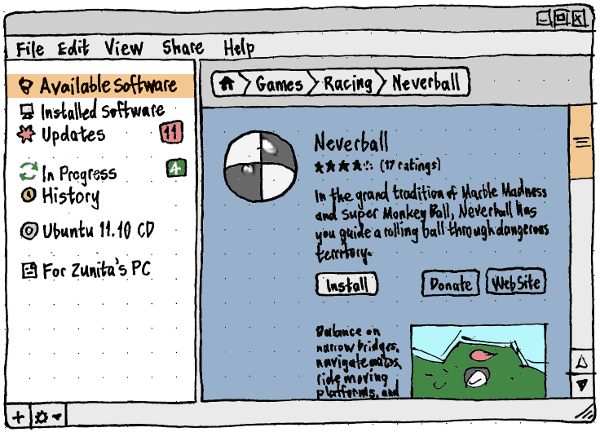 File Edit View Share Help
Available Software
Installed Software
Updates 11
In Progress 4
History
Ubuntu 11.10 CD
For Zunita's PC
Games Racing Neverball
Neverball
(17 ratings)
In the grand tradition of Marble Madness
and Super Monkey Ball, Neverball has
you guide a rolling ball through dangerous
territory.
Install Donate Web Site
Balance on
narrow bridges,
navigate mazes,
ride moving
platforms, and